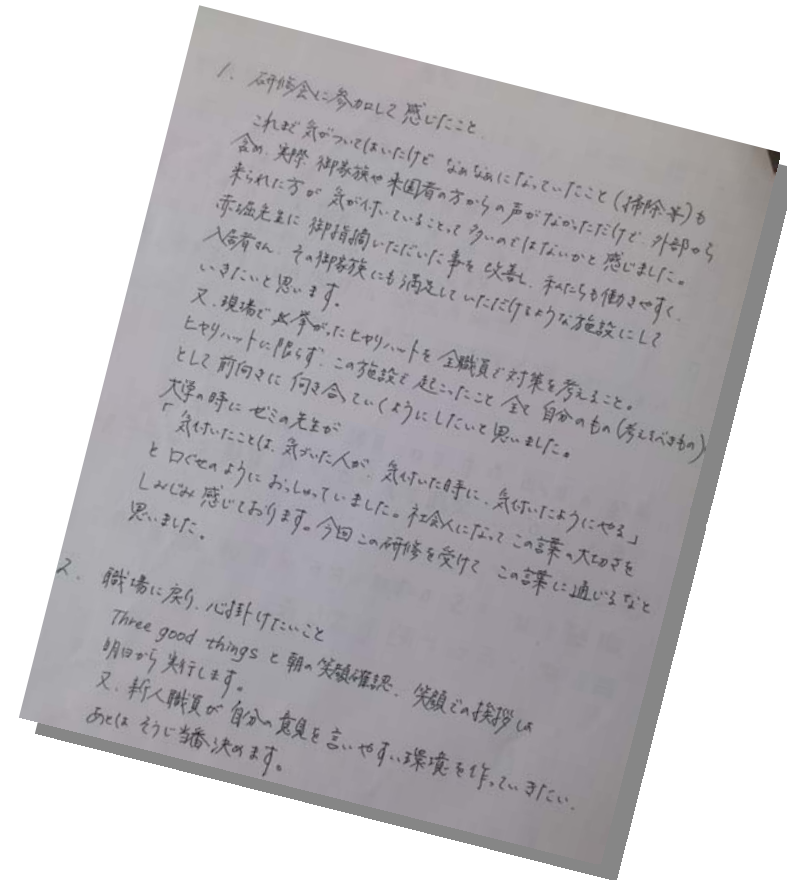 1. 研修会に参加して感じたこと.
これまで気がついてはいたけど なぁなぁになっていたこと(掃除等)も
含め、実際、御家族や来園者の方からの声がなかっただけで、外部から
来られた方が 気が付いていることって多いのではないかと感じました。
赤堀先生に御指摘いただいた事を改善し、私たちも働きやすく、
入居者さん、その御家族にも満足していただけるような施設にして
いきたいと思います。
又、現場で 挙がったヒヤリハットを全職員で対策を考えること。
ヒヤリハットに限らず、この施設で起こったこと全て自分のもの(考えるべきもの)
として前向きに向き合っていくようにしたいと思いました。
大学の時にゼミの先生が
「気付いたことは、気づいた人が、気付いた時に、気付いたようにやる」
と口ぐせのようにおっしゃっていました。社会人になってこの言葉の大切さを
しみじみ感じております。今回この研修を受けて この言葉に通じるなと
思いました。
2. 職場に戻り、心掛けたいこと
Three good things と朝の笑顔確認、笑顔での挨拶は
明日から実行します。
又、新人職員が自分の意見を言いやすい環境を作っていきたい.
あとは そうじ当番決めます。